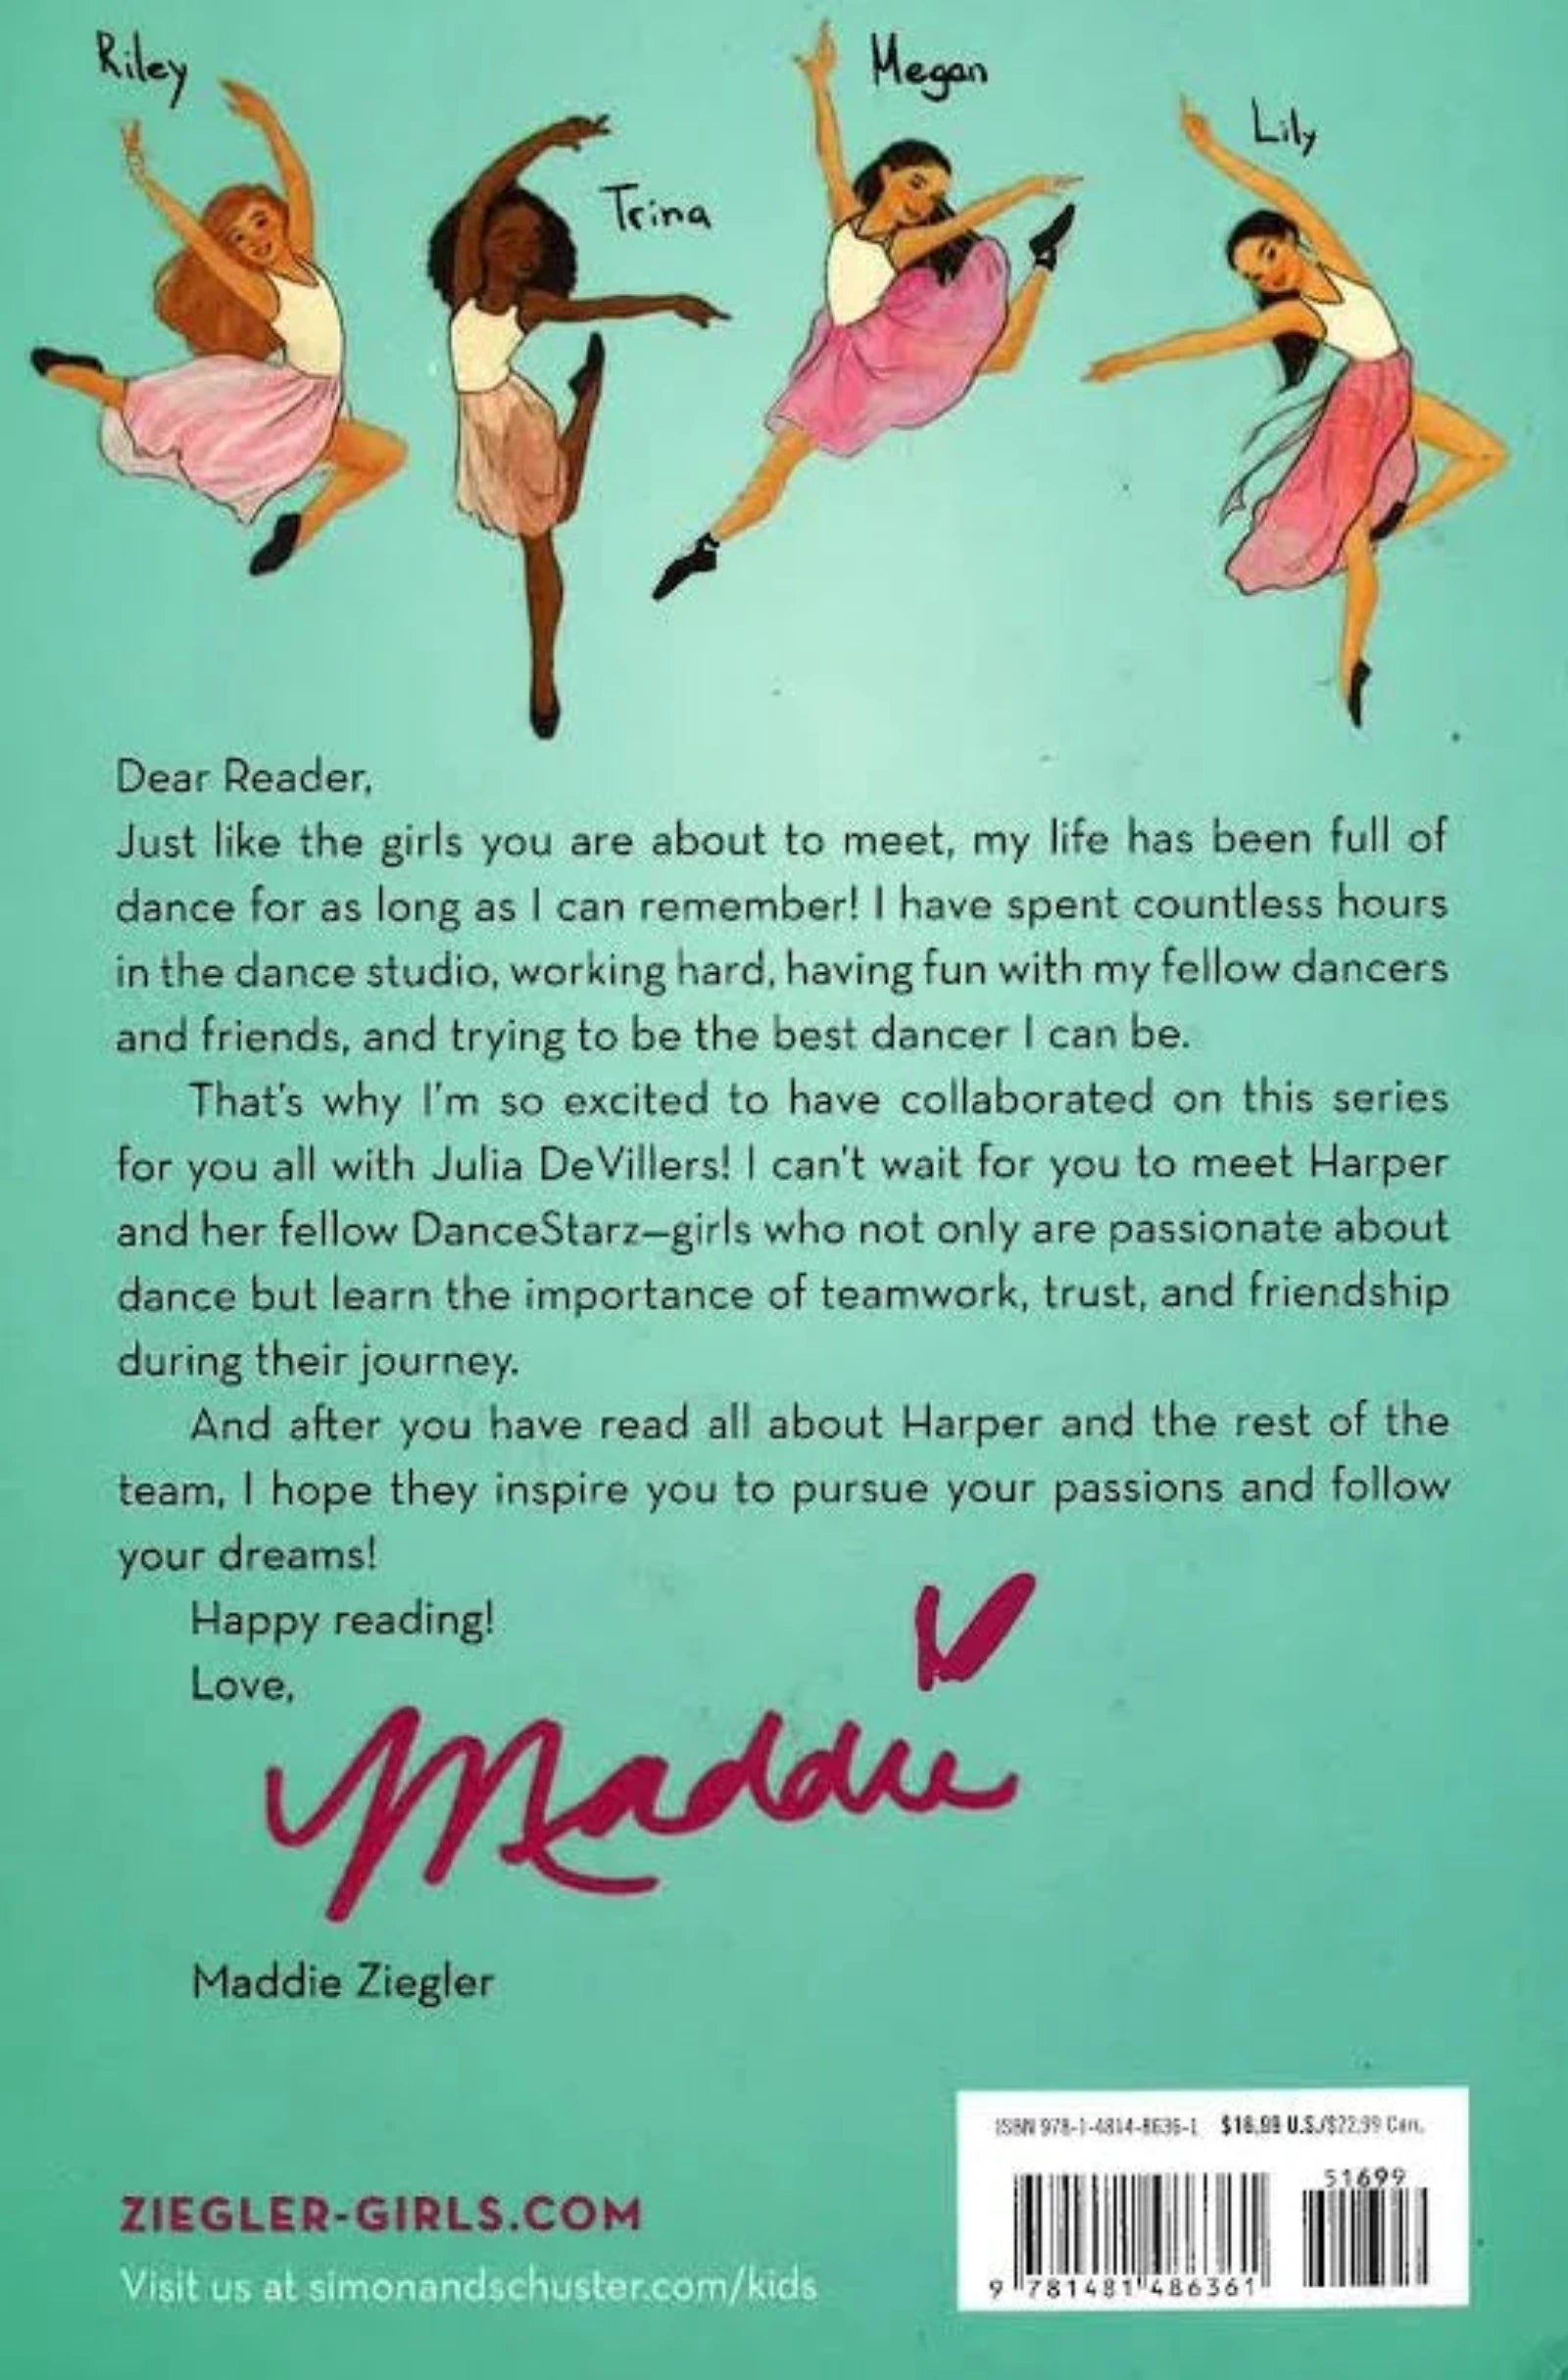 Riley
Megan
Lily
Trina
Dear Reader,
Just like the girls you are about to meet, my life has been full of
dance for as long as I can remember! I have spent countless hours
in the dance studio, working hard, having fun with my fellow dancers
and friends, and trying to be the best dancer I can be.
That's why I'm so excited to have collaborated on this series
for you all with Julia DeVillers! I can't wait for you to meet Harper
and her fellow DanceStarz—girls who not only are passionate about
dance but learn the importance of teamwork, trust, and friendship
during their journey.
And after you have read all about Harper and the rest of the
team, I hope they inspire you to pursue your passions and follow
your dreams!
Happy reading!
Love,
Maddie
Maddie Ziegler
ISBN 978-1-4814-8636-1 $16.99 U.S./$22.99 Can.
51699
9 781481 486361
ZIEGLER-GIRLS.COM
Visit us at simonandschuster.com/kids